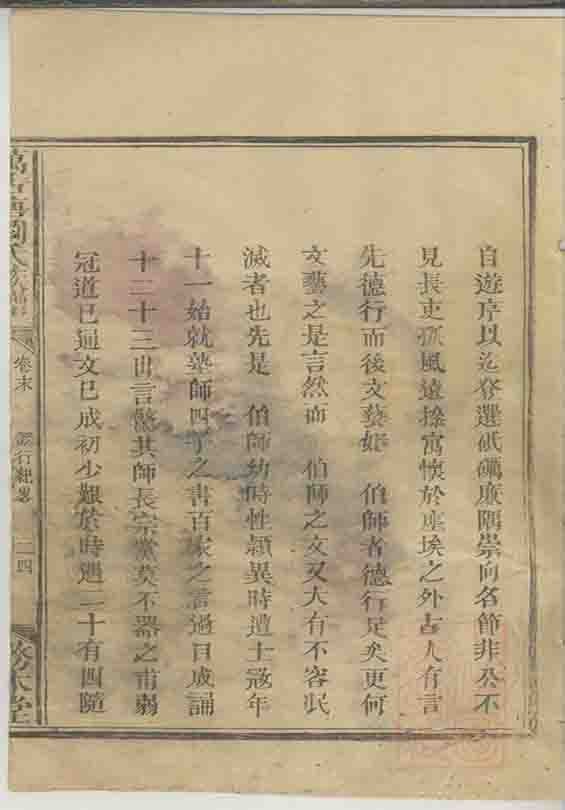 自遊庠以迄登選砥礪廉隅崇向名節非公不
見長吏孤風遠操寓懷於塵埃之外古人有言
先德行而後文藝如　伯師者德行足矣更何
文藝之是言然而　伯師之文又大有不容泯
滅者也先是　伯師幼時性穎異時遭土冦年
十一始就塾師四子之書百家之言過目成誦
十二十三出言驚其師長宗黨莫不器之甫弱
冠道已通文已成初少艱於時遇二十有四隨
卷末　行紀畧　二四